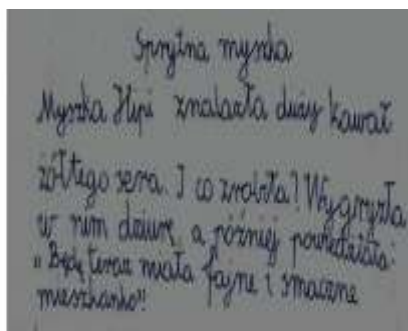 Sprytna myszka
Myszka Hipi znalazła duży kawał
żółtego sera. I co zrobiła? Wygryzła
w nim dziurę, a później powiedziała:
"Będę teraz miała fajne i smaczne
mieszkanko"!